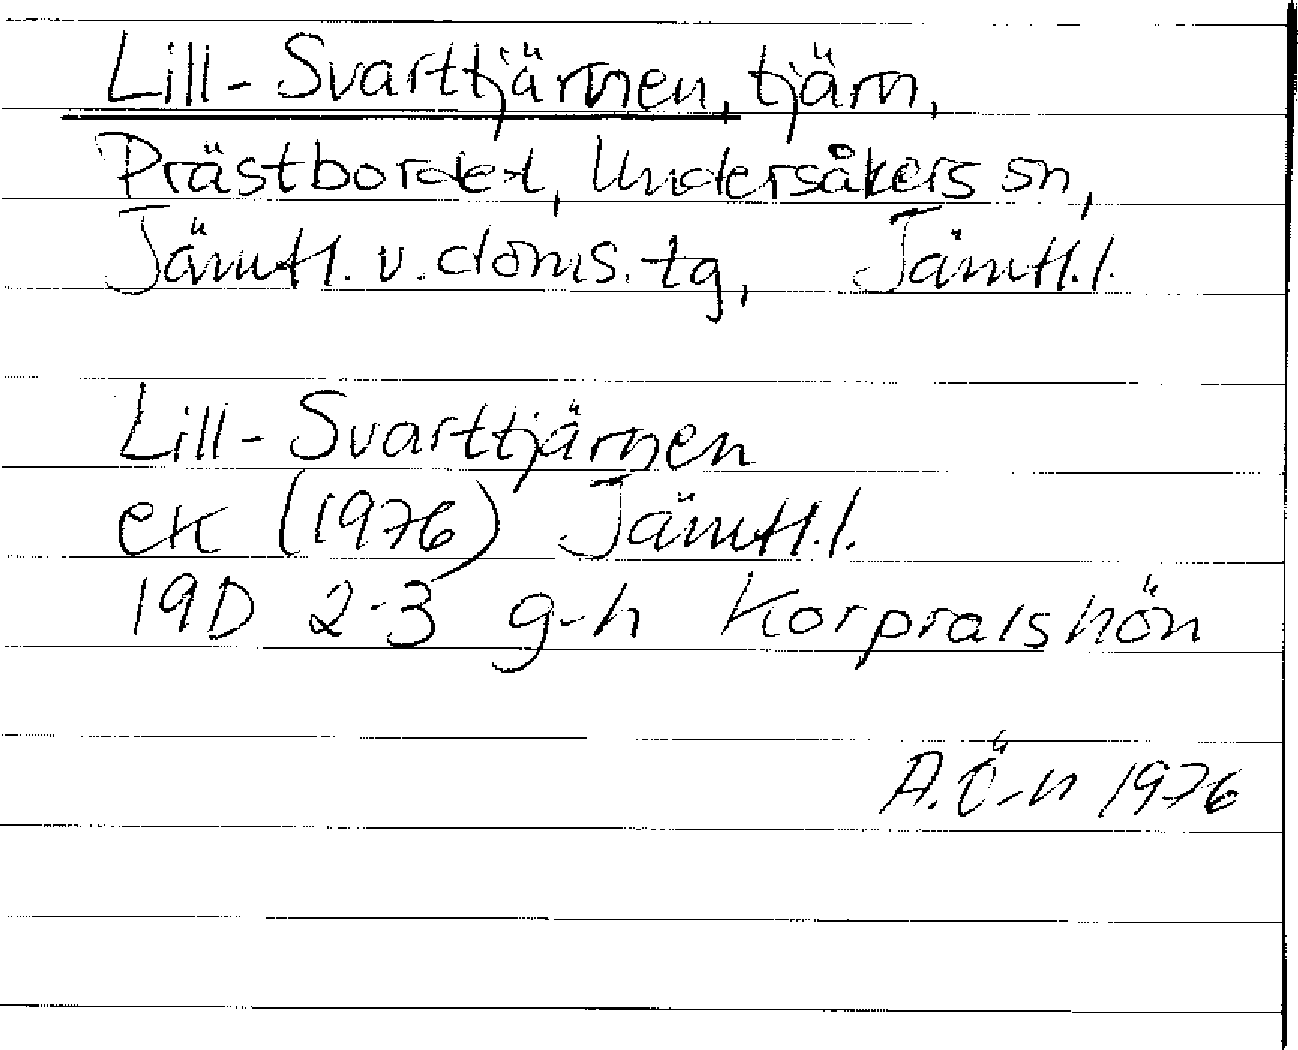 Lill-Svarttjärnen, tjärn,
Prästbordet, Undersåkers sn,
Jämtl. v. doms. tg, Jämtl. l.
Lill-Svarttjärnen
ek (1976) Jämtl. l.
19D 2-3 g-h Korpralshön
A. Ö-n 1976